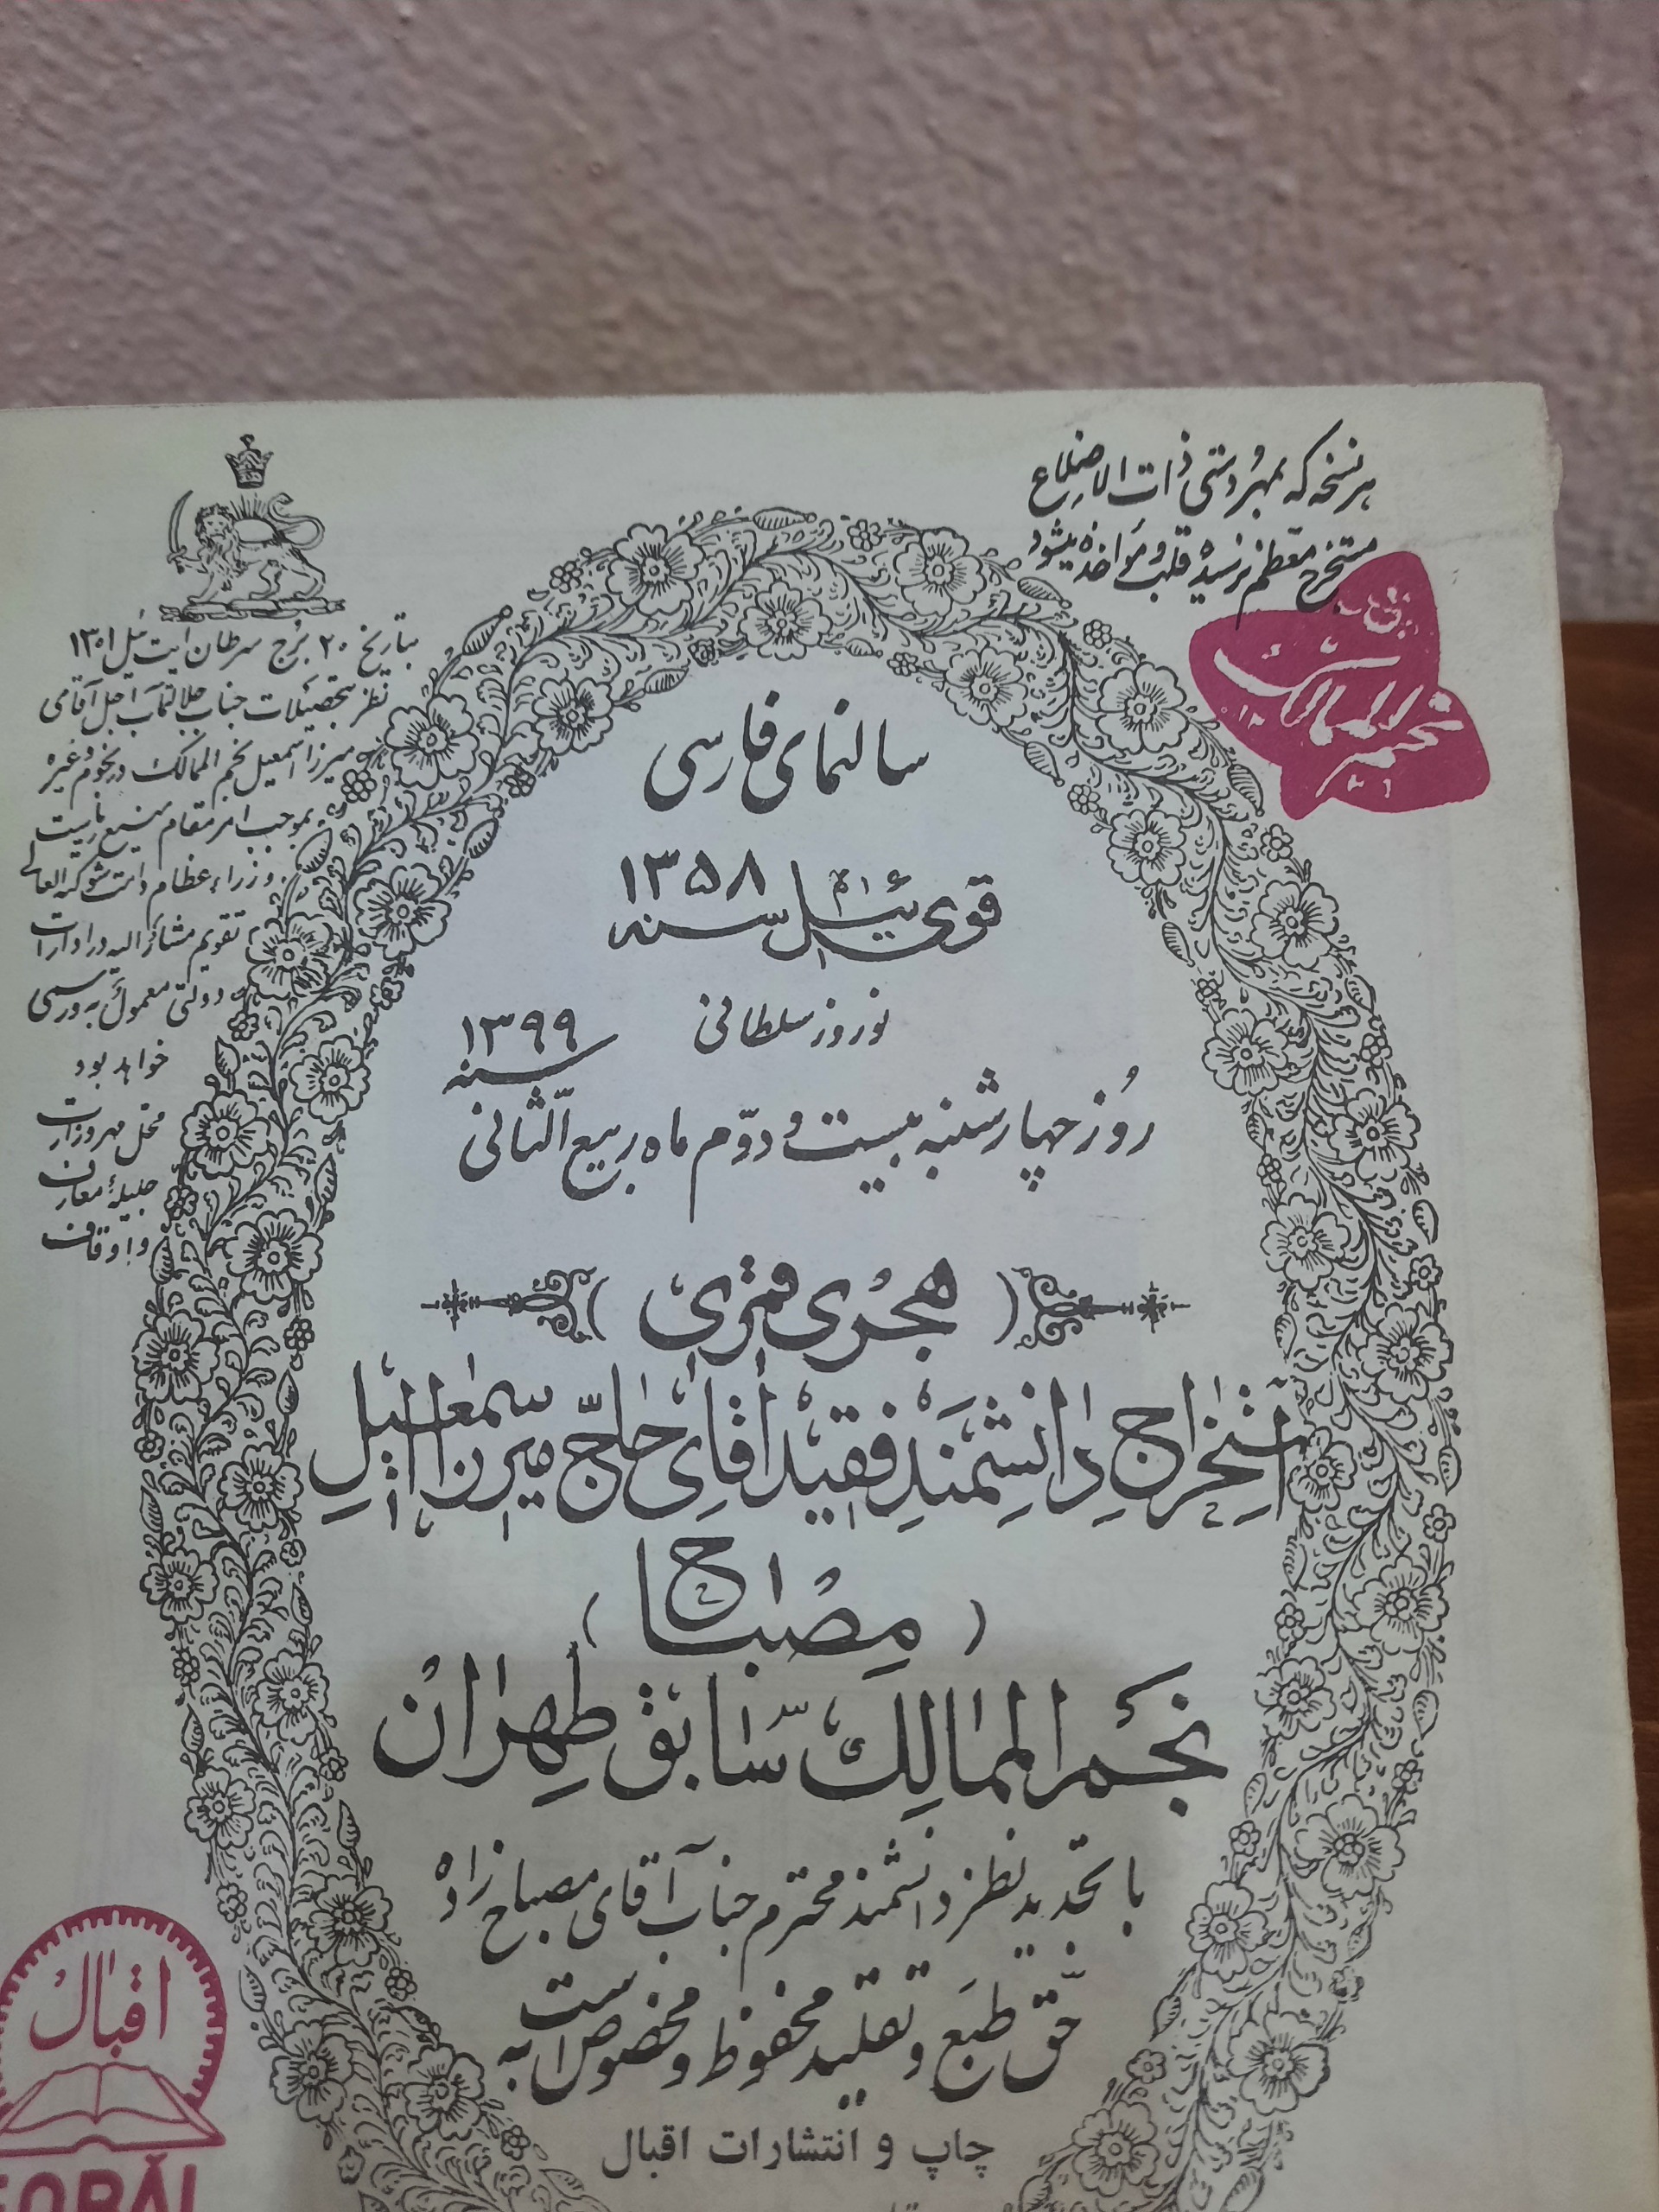 هر نسخه که بمهر دستی ذات الاضلاع
مستخرج معظم نرسیده قلب و مواخذه میشود
نجم الممالک
بتاریخ ۲۰ برج سرطان ایت ئیل ۱۳۰۱
نظر بتحصیلات جناب جلالتمآب اجل آقای
میرزا اسمعیل نجم الممالک در نجوم و غیره
بموجب امر مقام منیع ریاست
وزراء عظام دامت شوکته العالی
تقویم مشارالیه در ادارات
دولتی معمول به و رسمی
خواهد بود
محل مهر وزارت
جلیله معارف
و اوقاف
سالنمای فارسی
قوی ئیل سنه ۱۳۵۸
نوروز سلطانی
سنه ۱۳۹۹
روز چهارشنبه بیست و دوم ماه ربیع الثانی
(هجری قمری)
استخراج دانشمند فقید آقای حاج میرزا اسمعیل
(مصباح)
نجم الممالک سابق طهران
با تجدید نظر دانشمند محترم جناب آقای مصباح زاده
حق طبع و تقلید محفوظ و مخصوص است به
چاپ و انتشارات اقبال
اقبال
EQBĂL